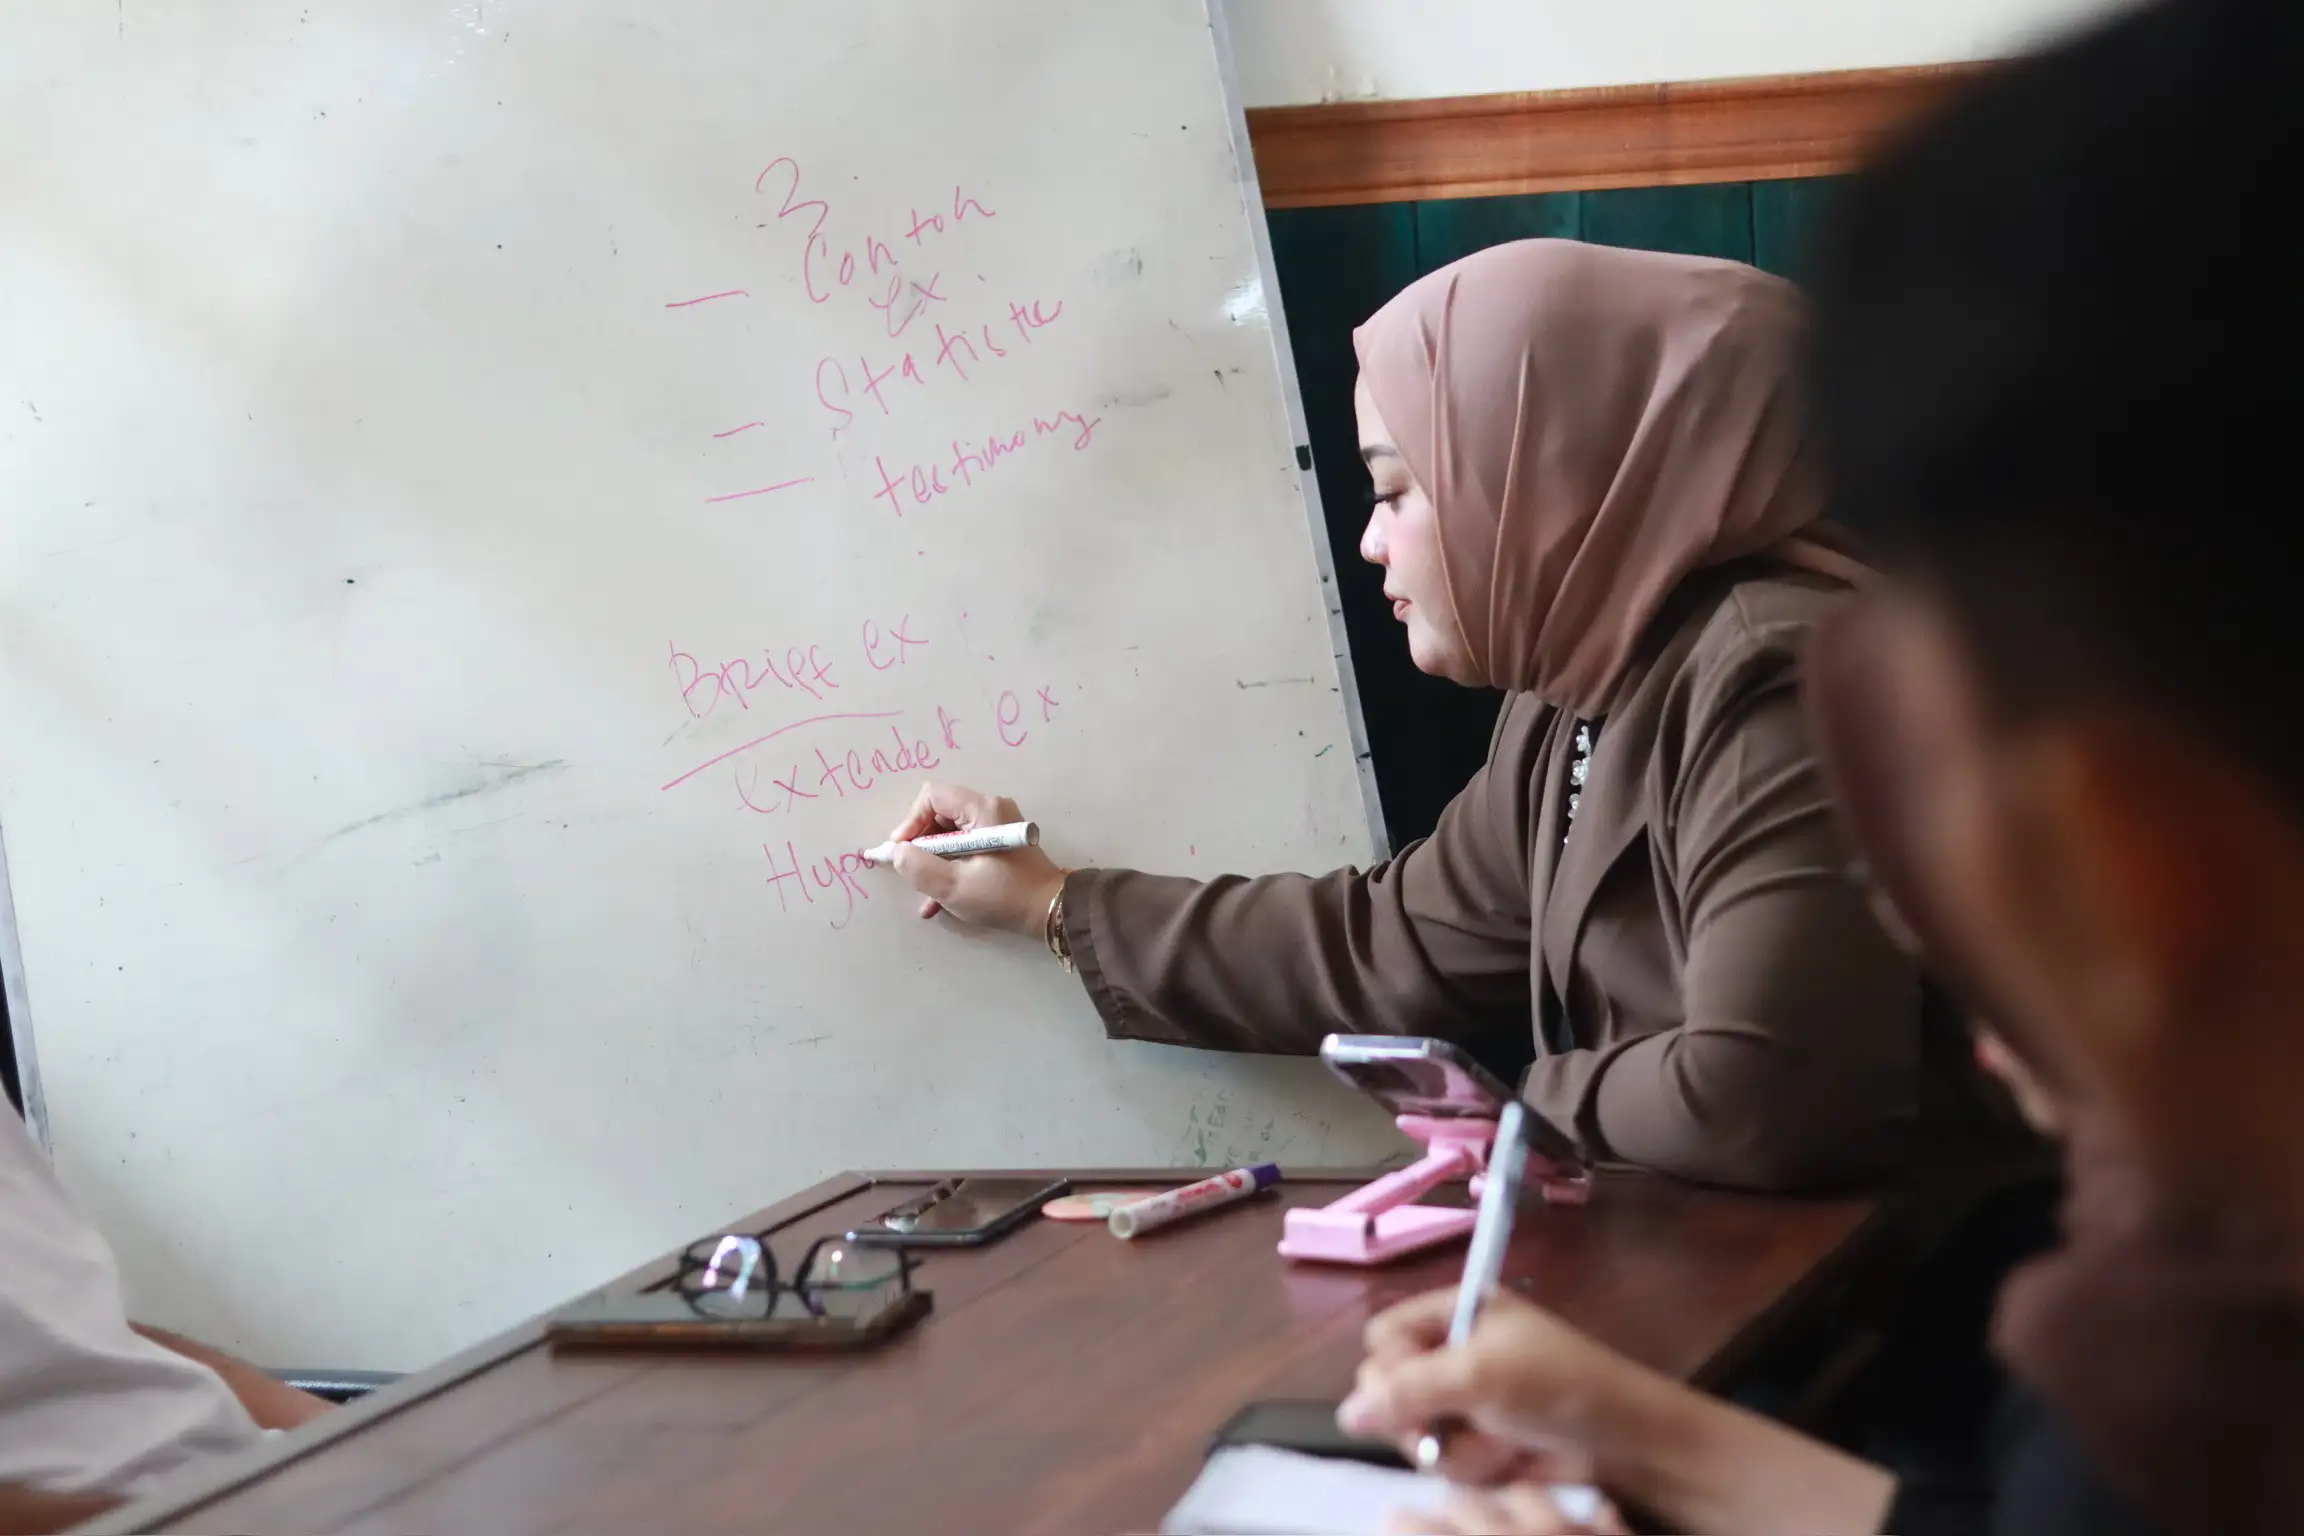 3
— Contoh
ex.
— Statistic
— testimony
Brief ex.
extended ex.
Hypo